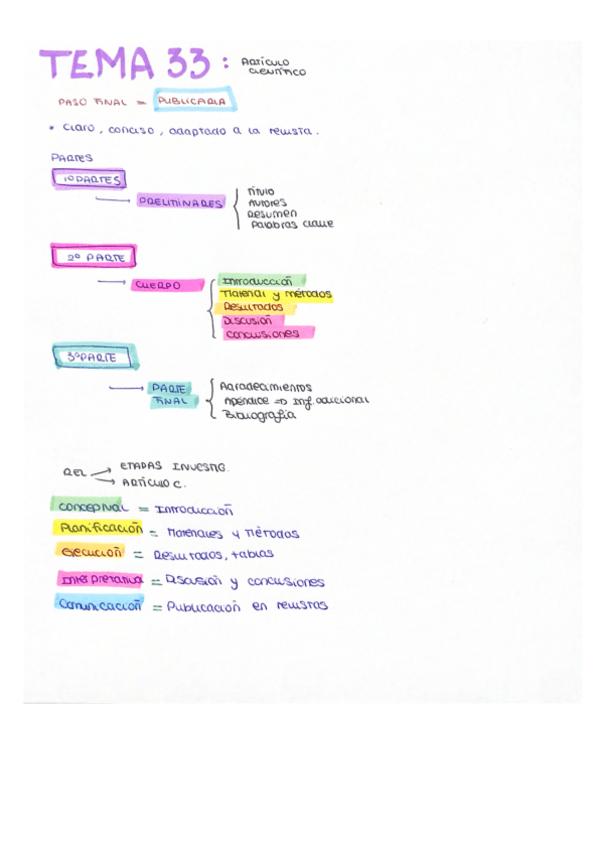 TEMA 33: Artículo
científico
PASO FINAL = PUBLICARLA
* Claro, conciso, adaptado a la revista.
PARTES
1º PARTES
PRELIMINARES
Título
Autores
Resumen
Palabras clave
2º PARTE
CUERPO
Introducción
Material y métodos
Resultados
Discusión
Conclusiones
3º PARTE
PARTE
FINAL
Agradecimientos
Apéndice => Inf. adicional
Bibliografía
REL
ETAPAS INVESTIG.
ARTÍCULO C.
Conceptual = Introducción
Planificación = Materiales y Métodos
Ejecución = Resultados, tablas
Interpretativa = Discusión y conclusiones
Comunicación = Publicación en revistas